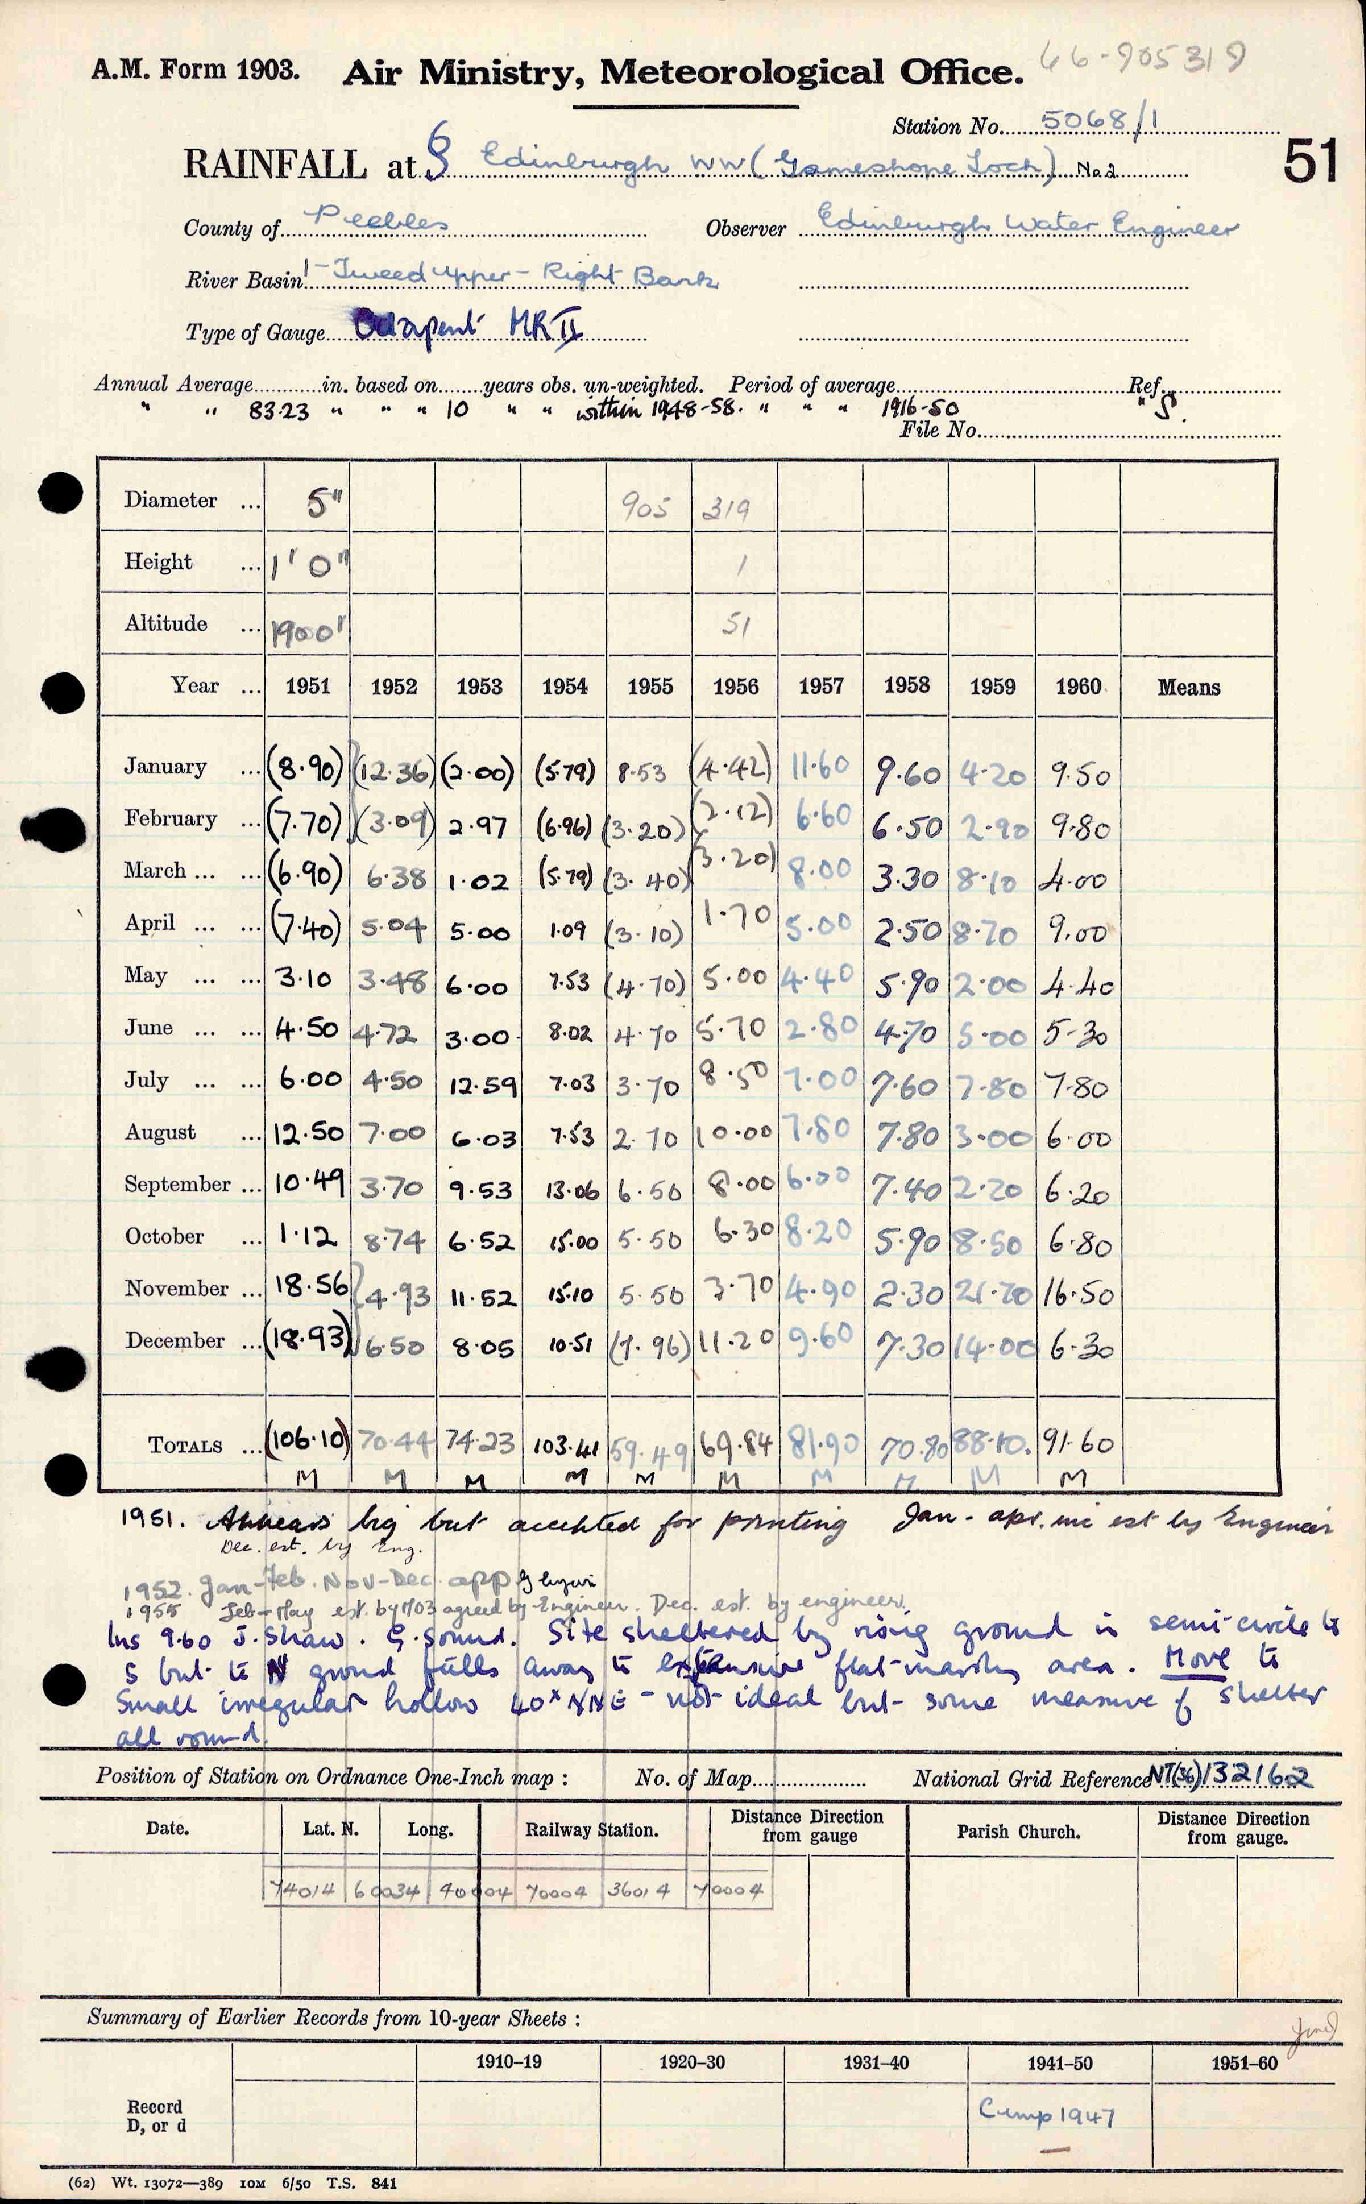 66-905319
A.M. Form 1903. Air Ministry, Meteorological Office.
Station No. 5068/1
RAINFALL at § Edinburgh WW (Gameshope Loch) No 2
51
County of Peebles Observer Edinburgh Water Engineer
River Basin 1-Tweed Upper - Right Bank
Type of Gauge Octapent MR II
Annual Average in. based on years obs. un-weighted. Period of average Ref.
" " 83.23 " " " 10 " " within 1948-58. " " " 1916-50 " S.
File No.
Diameter ... 5" 905 319
Height ... 1' 0" 1
Altitude ... 1900' 51
Year ... 1951 1952 1953 1954 1955 1956 1957 1958 1959 1960 Means
January ... (8.90) (12.36) (2.00) (5.79) 8.53 (4.42) 11.60 9.60 4.20 9.50
February ... (7.70) (3.09) 2.97 (6.96) (3.20) (2.12) 6.60 6.50 2.90 9.80
March ... ... (6.90) 6.38 1.02 (5.79) (3.40) (3.20) 8.00 3.30 8.10 4.00
April ... ... (7.40) 5.04 5.00 1.09 (3.10) 1.70 5.00 2.50 8.70 9.00
May ... ... 3.10 3.48 6.00 7.53 (4.70) 5.00 4.40 5.90 2.00 4.40
June ... ... 4.50 4.72 3.00 8.02 4.70 5.70 2.80 4.70 5.00 5.30
July ... ... 6.00 4.50 12.59 7.03 3.70 8.50 7.00 7.60 7.80 7.80
August ... 12.50 7.00 6.03 7.53 2.70 10.00 7.80 7.80 3.00 6.00
September ... 10.49 3.70 9.53 13.06 6.50 8.00 6.00 7.40 2.20 6.20
October ... 1.12 8.74 6.52 15.00 5.50 6.30 8.20 5.90 8.50 6.80
November ... 18.56 4.93 11.52 15.10 5.50 3.70 4.90 2.30 21.70 16.50
December ... (18.93) 6.50 8.05 10.51 (7.96) 11.20 9.60 7.30 14.00 6.30
TOTALS ... (106.10) 70.44 74.23 103.41 59.49 69.84 81.90 70.80 88.10. 91.60
M M M M M M M M M M
1951. Appears big but accepted for printing Jan - apr. inc est by Engineer
Dec. est. by Eng.
1952. Jan-Feb. Nov-Dec. app
1955 Feb-May est. by M03 agreed by Engineer. Dec. est. by engineer.
Ins 9.60 J. Shaw. G. sound. Site sheltered by rising ground in semi-circle to
S but to N ground falls away to extensive flat marshy area. Move to
small irregular hollow 40x NNE - not ideal but some measure of shelter
all round.
Position of Station on Ordnance One-Inch map : No. of Map National Grid Reference NT(36)132162
Date. Lat. N. Long. Railway Station. Distance Direction from gauge Parish Church. Distance Direction from gauge.
74014 60034 40004 70004 36014 70004
Summary of Earlier Records from 10-year Sheets :
1910–19 1920–30 1931–40 1941–50 1951–60
Record
D, or d
Cump 1947
(62) Wt. 13072—389 10M 6/50 T.S. 841